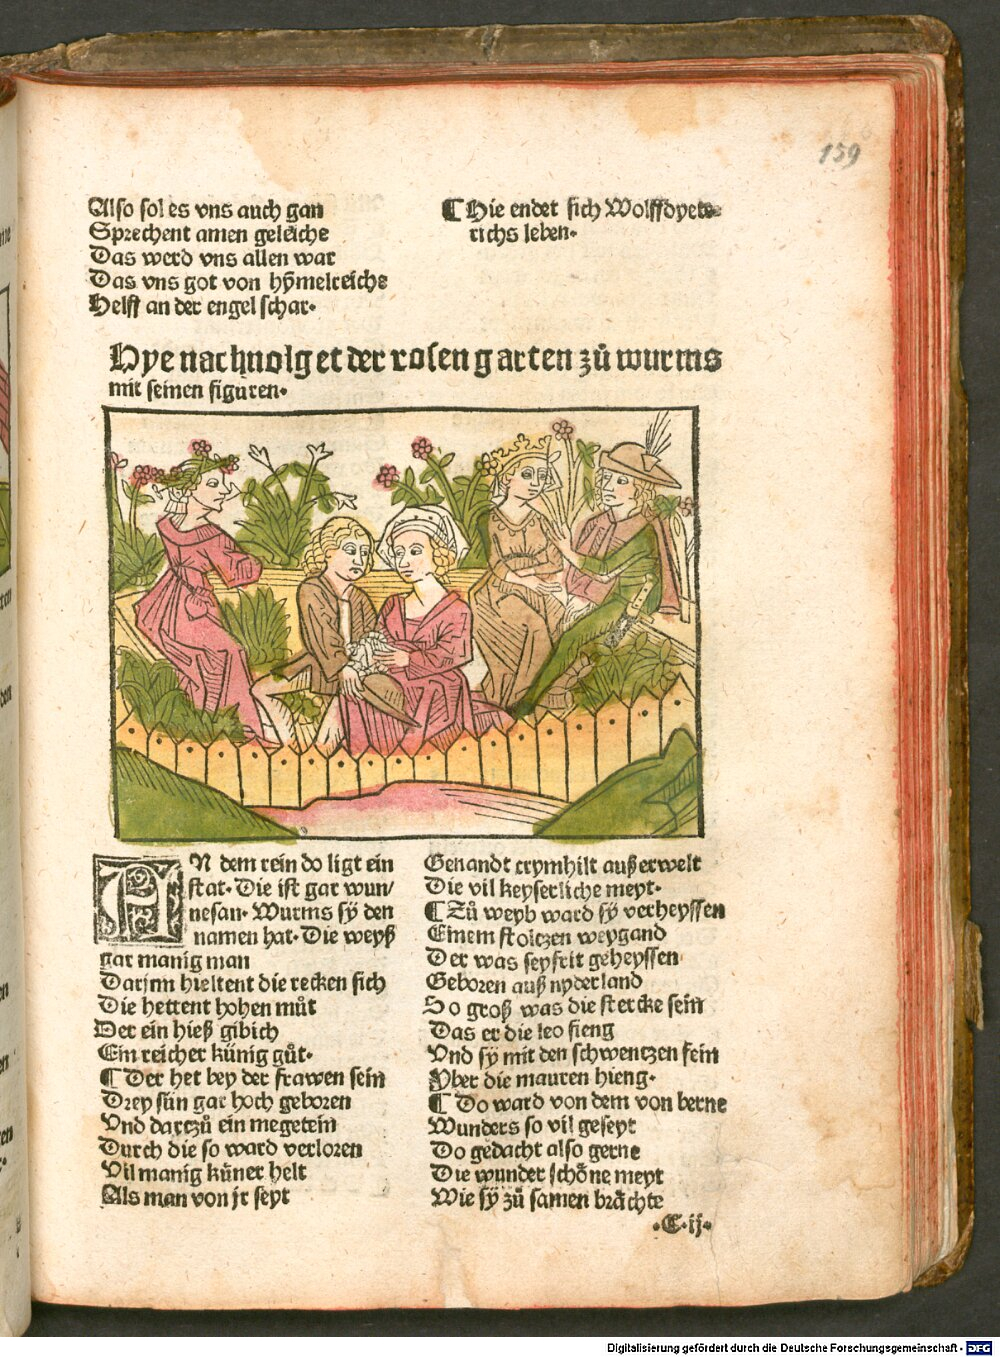 159
Also sol es vns auch gan
Sprechent amen geleiche
Das werd vns allen war
Das vns got von hÿmelreiche
Helff an der engel schar.
¶ Hie endet sich Wolffdyete-
richs leben.
Hye nachuolget der rosengarten zů wurms
mit seinen figuren.
AN dem rein do ligt ein
stat. Die ist gar wun/
nesan. Wurms sÿ den
namen hat. Die weyß
gar manig man
Darjnn hieltent die recken sich
Die hettent hohen můt
Der ein hieß gibich
Ein reicher künig gůt.
¶ Der het bey der frawen sein
Drey sün gar hoch geboren
Vnd darczů ein megetein
Durch die so ward verloren
Vil manig küner helt
Als man von jr seyt
Genandt crymhilt außerwelt
Die vil keyserliche meyt.
¶ Zů weyb ward sÿ verheyssen
Einem stolczen weygand
Der was seyfrit geheyssen
Geboren auß nyderland
So groß was die stercke sein
Das er die leo fieng
Vnd sÿ mit den schwentzen sein
Vber die mauren hieng.
¶ Do ward von dem von berne
Wunders so vil geseyt
Do gedacht also gerne
Die wunder schöne meyt
Wie sÿ zů samen brächte
.C.ij.
Digitalisierung gefördert durch die Deutsche Forschungsgemeinschaft - DFG